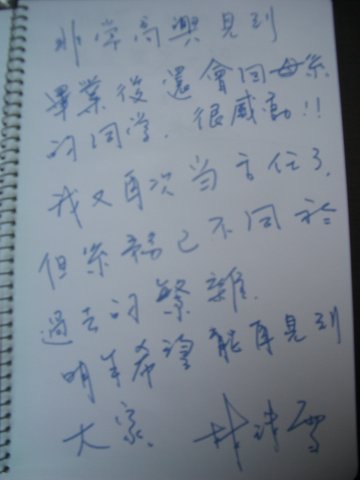 非常高興見到
畢業後還會回母系
的同学.很感動!!
我又再次当主任了,
但系務已不同於
過去的繁雜.
明年希望能再見到
大家. 林